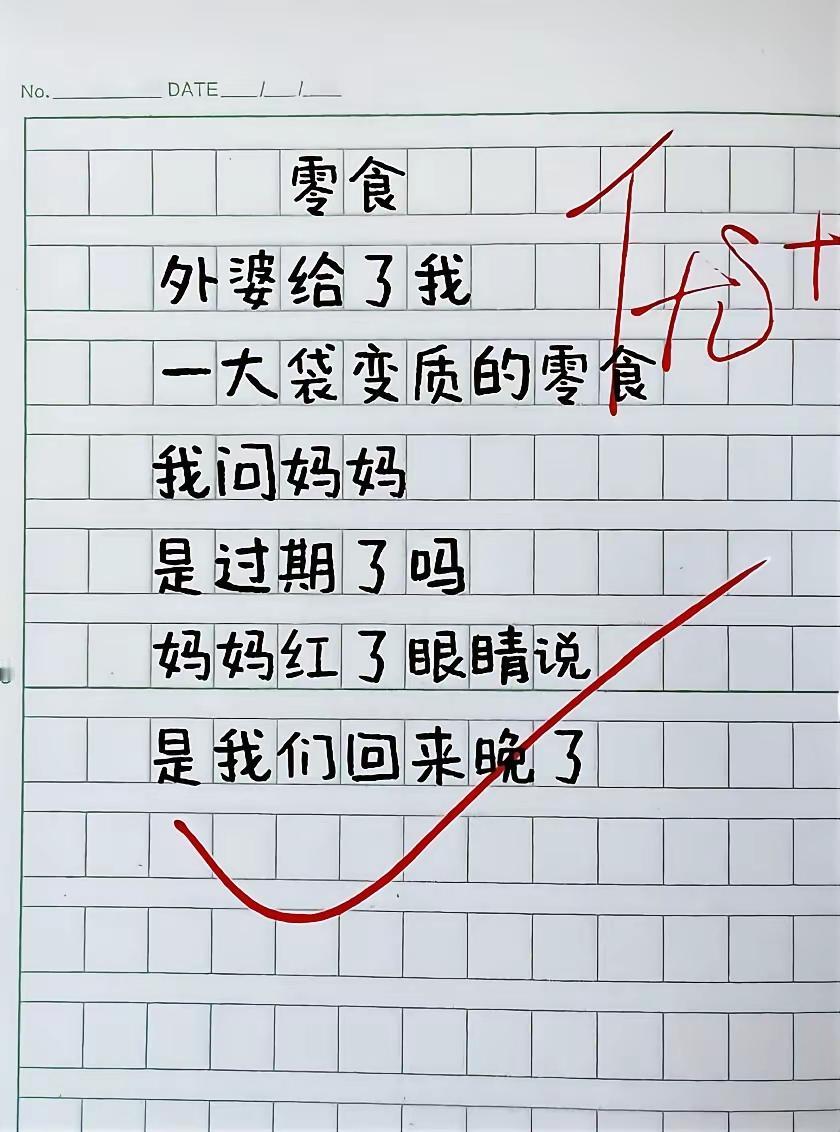 No. DATE / /
零食
外婆给了我
一大袋变质的零食
我问妈妈
是过期了吗
妈妈红了眼睛说
是我们回来晚了